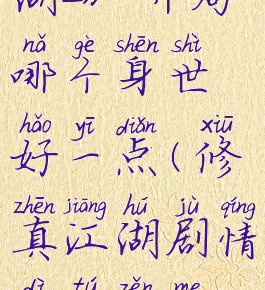 nǎ gè shēn shì
哪个身世
hǎo yī diǎn xiū
好一点(修
zhēn jiāng hú jù qíng
真江湖剧情